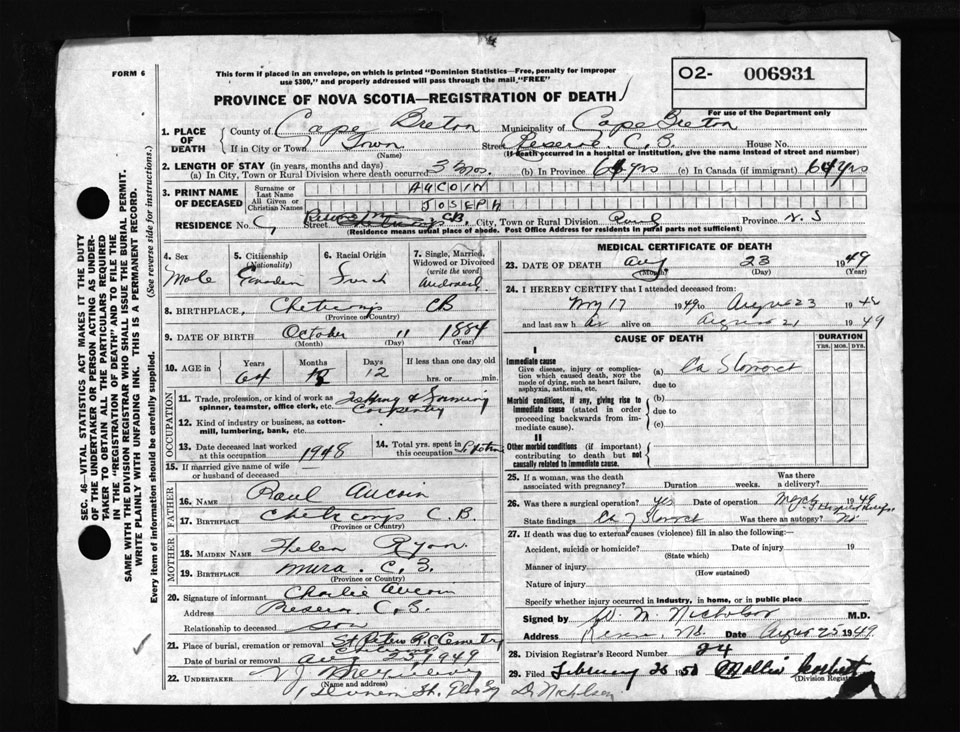 FORM 6
This form if placed in an envelope, on which is printed "Dominion Statistics—Free, penalty for improper
use $300," and properly addressed will pass through the mail "FREE"
O2- 006931
For use of the Department only
PROVINCE OF NOVA SCOTIA—REGISTRATION OF DEATH
1. PLACE OF DEATH
County of Cape Breton Municipality of Cape Breton
If in City or Town Town Street Reserve C.B. House No.
(Name) (If death occurred in a hospital or institution, give the name instead of street and number)
2. LENGTH OF STAY (in years, months and days)
(a) In City, Town or Rural Division where death occurred 3 mos. (b) In Province 64 yrs (c) In Canada (if immigrant) 64 yrs
3. PRINT NAME OF DECEASED
Surname or Last Name AUCOIN
All Given or Christian Names JOSEPH
RESIDENCE No. Street CB. City, Town or Rural Division Province N.S
(Residence means usual place of abode. Post Office Address for residents in rural parts not sufficient)
4. Sex
Male
5. Citizenship
(Nationality)
Canadian
6. Racial Origin
French
7. Single, Married,
Widowed or Divorced
(write the word)
Widowed
8. BIRTHPLACE, Cheticamp CB
(Province or Country)
9. DATE OF BIRTH October 11 1884
(Month) (Day) (Year)
10. AGE in
Years
64
Months
Days
12
If less than one day old
hrs. or min.
OCCUPATION
11. Trade, profession, or kind of work as
spinner, teamster, office clerk, etc. Fishing & Farming
Carpentry
12. Kind of industry or business, as cotton-
mill, lumbering, bank, etc.
13. Date deceased last worked
at this occupation 1948
14. Total yrs. spent in
this occupation
15. If married give name of wife
or husband of deceased —
FATHER
16. NAME Paul Aucoin
17. BIRTHPLACE Cheticamp C.B.
(Province or Country)
MOTHER
18. MAIDEN NAME Helen Ryan
19. BIRTHPLACE Mira. C.B.
(Province or Country)
20. Signature of informant Charlie Aucoin
Address Reserve C.B.
Relationship to deceased son
21. Place of burial, cremation or removal St Peters R.C Cemetry
Date of burial or removal Aug 25, 1949
22. UNDERTAKER
(Name and address)
MEDICAL CERTIFICATE OF DEATH
23. DATE OF DEATH Aug 23 1949
(Month) (Day) (Year)
24. I HEREBY CERTIFY that I attended deceased from:
May 17 1949 to August 23 19
and last saw h alive on August 21 1949
CAUSE OF DEATH
DURATION
YRS. MOS. DYS.
I
Immediate cause
Give disease, injury or complica-
tion which caused death, not the
mode of dying, such as heart failure,
asphyxia, asthenia, etc.
(a) Ca Stomach
due to
Morbid conditions, if any, giving rise to
immediate cause (stated in order
proceeding backwards from im-
mediate cause).
(b)
due to
(c)
II
Other morbid conditions (if important)
contributing to death but not
causally related to immediate cause.
25. If a woman, was the death
associated with pregnancy? Duration weeks. Was there
a delivery?
26. Was there a surgical operation? yes Date of operation 1949
State findings Ca of Stomach Was there an autopsy? No
27. If death was due to external causes (violence) fill in also the following:—
Accident, suicide or homicide? Date of injury 19
(State which)
Manner of injury
(How sustained)
Nature of injury
Specify whether injury occurred in industry, in home, or in public place
Signed by W. N. Nicholson M.D.
Address Reserve, N.S. Date August 25 1949
28. Division Registrar's Record Number 24
29. Filed February 1950 Mollie
(Division Registrar)
Dr Nicholson
SEC. 46—VITAL STATISTICS ACT MAKES IT THE DUTY
OF THE UNDERTAKER OR PERSON ACTING AS UNDER-
TAKER TO OBTAIN ALL THE PARTICULARS REQUIRED
IN THE "REGISTRATION OF DEATH" AND TO FILE THE
SAME WITH THE DIVISION REGISTRAR WHO SHALL ISSUE THE BURIAL PERMIT.
WRITE PLAINLY WITH UNFADING INK. THIS IS A PERMANENT RECORD.
Every item of information should be carefully supplied. (See reverse side for instructions.)